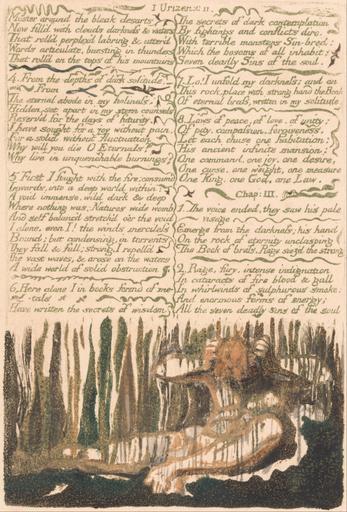 I Urizen: C II.
Muster around the bleak desarts
Now fill'd with clouds, darkness & waters
That roll'd perplex'd labring & utter'd
Words articulate, bursting in thunders
That roll'd on the tops of his mountains
4. From the depths of dark solitude.
From
The eternal abode in my holiness,
Hidden, set apart in my stern counsels
Reserv'd for the days of futurity,
I have sought for a joy without pain,
For a solid without fluctuation
Why will you die O Eternals?
Why live in unquenchable burnings?
5 First I fought with the fire; consum'd
Inwards, into a deep world within:
A void immense, wild dark & deep,
Where nothing was; Natures wide womb
And self balanc'd stretch'd o'er the void
I alone, even I! the winds merciless
Bound; but condensing, in torrents
They fall & fall; strong, I repell'd
The vast waves, & arose on the waters
A wide world of solid obstruction
6. Here alone I in books formd of me-
-tals
Have written the secrets of wisdom
The secrets of dark contemplation
By fightings and conflicts dire,
With terrible monsters Sin-bred:
Which the bosoms of all inhabit;
Seven deadly Sins of the soul.
7. Lo! I unfold my darkness: and on
This rock, place with strong hand the Book
Of eternal brass, written in my solitude.
8. Laws of peace, of love, of unity:
Of pity, compassion, forgiveness.
Let each chuse one habitation:
His ancient infinite mansion:
One command, one joy, one desire,
One curse, one weight, one measure
One King, one God, one Law.
Chap: III.
1. The voice ended, they saw his pale
visage
Emerge from the darkness; his hand
On the rock of eternity unclasping
The Book of brass. Rage siez'd the strong
2. Rage, fury, intense indignation
In cataracts of fire blood & gall
In whirlwinds of sulphurous smoke:
And enormous forms of energy;
All the seven deadly sins of the soul